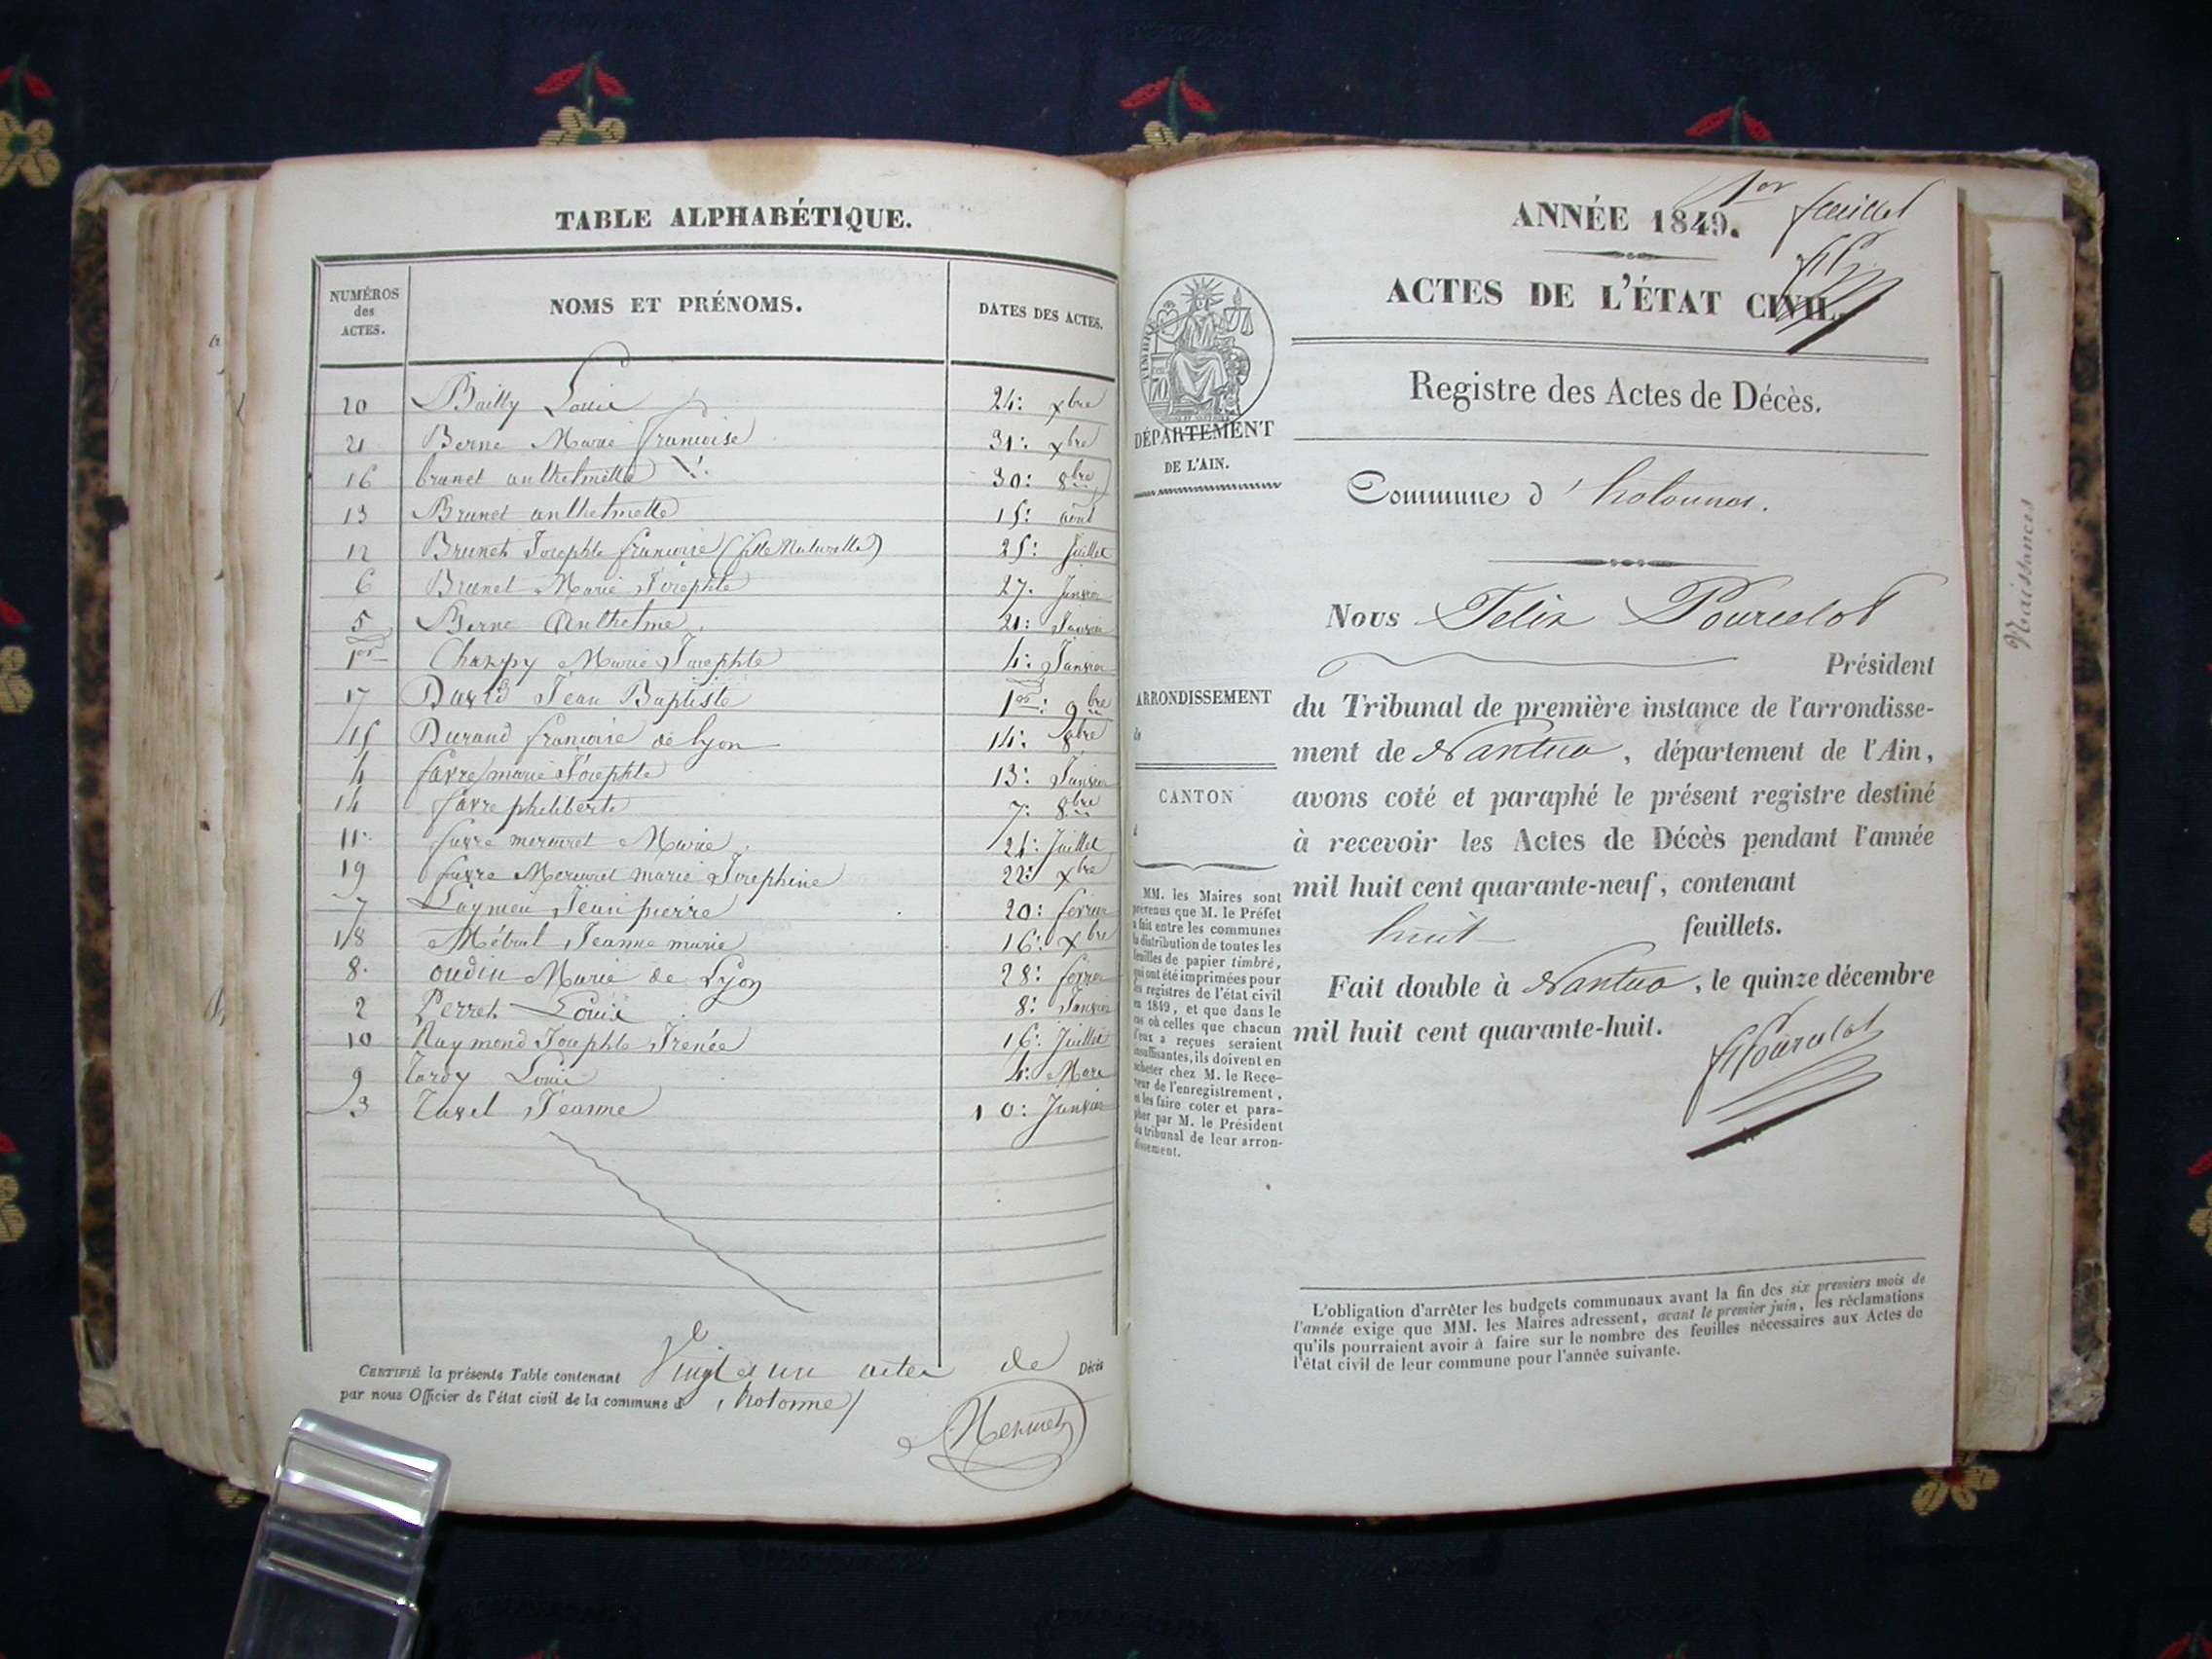 TABLE ALPHABÉTIQUE.
NUMÉROS
des
ACTES.
NOMS ET PRÉNOMS.
DATES DES ACTES.
20 Bailly Louis 24: xbre
21 Berne Marie Françoise 31: xbre
16 brunet anthelmette 30: 8bre
13 Brunet anthelmette 15: aout
12 Brunet Josephte françoise (fille Naturelle) 25: Juillet
6 Brunet Marie Josephte 27. Janvier
5 Berne Anthelme. 21: Janvier
1er Charpy Marie Josephte 4: Janvier
17 David Jean Baptiste 1er: 9bre
15 Durand françoise de lyon 14: 8bre
4 favre marie Josephte 13: Janvier
14 favre philiberte 7: 8bre
11. favre mercuret Marie. 21: Juillet
19 favre Mercuret marie Josephine 22: xbre
7 Jean pierre 20: fevrier
18 Métral Jeanne marie 16: xbre
8. oudin Marie de Lyon 28: fevrier
2 Perret Louis 8: Janvier
10 Raymond Josephte Irenée 16: Juillet
9 Tardy Louis 4: Mars
3 Tavel Jeanne 10: Janvier
CERTIFIÉ la présente Table contenant Vingt et un actes de Décès
par nous Officier de l'état civil de la commune d' hotonne
Mermet
1er feuillet
ANNÉE 1849.
ACTES DE L'ÉTAT CIVIL.
Registre des Actes de Décès.
DÉPARTEMENT
DE L'AIN.
Commune d' hotonnes.
Nous Felix Pourcelot
Président
ARRONDISSEMENT
du Tribunal de première instance de l'arrondisse-
ment de Nantua, département de l'Ain,
CANTON
avons coté et paraphé le présent registre destiné
à recevoir les Actes de Décès pendant l'année
mil huit cent quarante-neuf, contenant
huit feuillets.
Fait double à Nantua, le quinze décembre
mil huit cent quarante-huit.
f Pourcelot
MM. les Maires sont
prévenus que M. le Préfet
a fait entre les communes
la distribution de toutes les
feuilles de papier timbré,
qui ont été imprimées pour
les registres de l'état civil
en 1849, et que dans le
cas où celles que chacun
d'eux a reçues seraient
insuffisantes, ils doivent en
acheter chez M. le Rece-
veur de l'enregistrement,
et les faire coter et para-
pher par M. le Président
du tribunal de leur arron-
dissement.
L'obligation d'arrêter les budgets communaux avant la fin des six premiers mois de
l'année exige que MM. les Maires adressent, avant le premier juin, les réclamations
qu'ils pourraient avoir à faire sur le nombre des feuilles nécessaires aux Actes de
l'état civil de leur commune pour l'année suivante.
Naissances